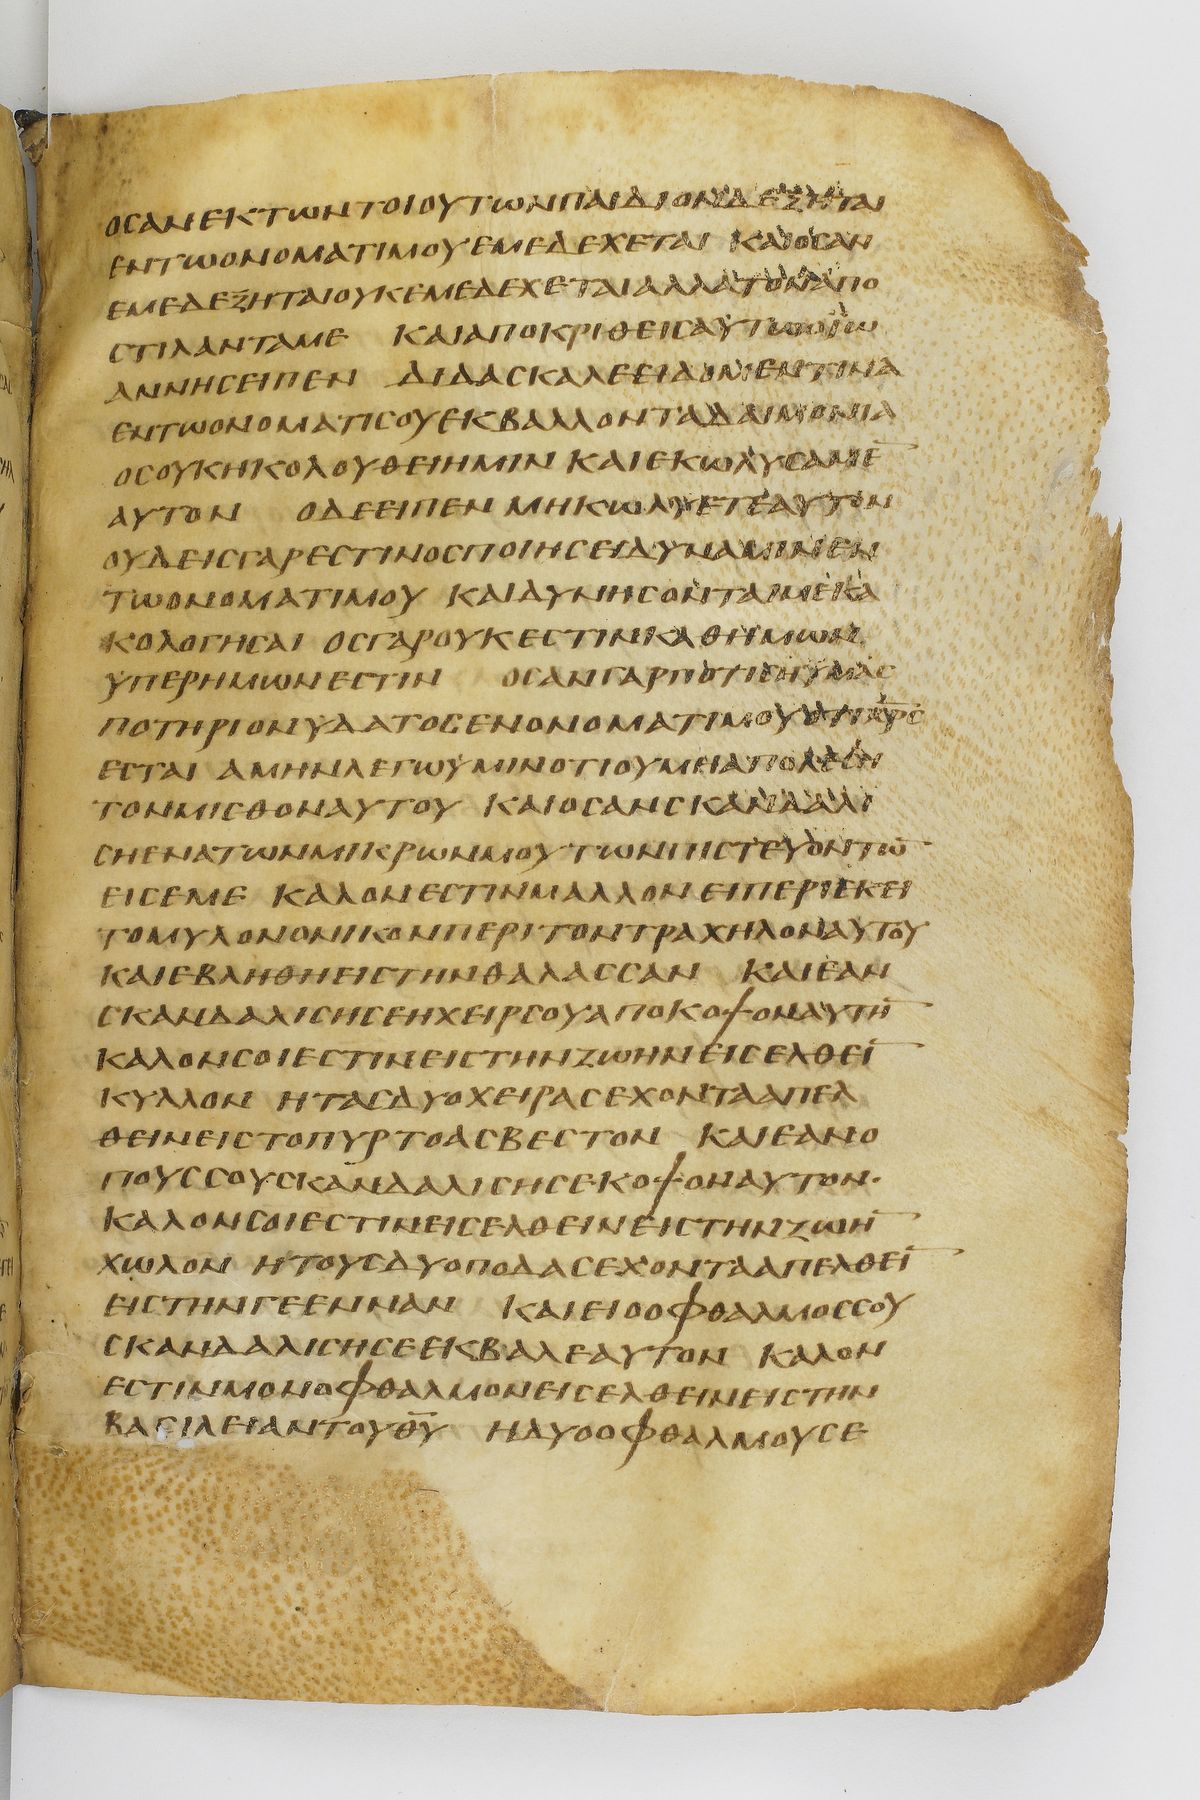 ΟϹΑΝΕΚΤΩΝΤΟΙΟΥΤΩΝΠΑΙΔΙΟΝΔΕΞΗΤΑΙ
ΕΝΤΩΟΝΟΜΑΤΙΜΟΥΕΜΕΔΕΧΕΤΑΙ ΚΑΙΟϹΑΝ
ΕΜΕΔΕΞΗΤΑΙΟΥΚΕΜΕΔΕΧΕΤΑΙΑΛΛΑΤΟΝΑΠΟ
ϹΤΙΛΑΝΤΑΜΕ ΚΑΙΑΠΟΚΡΙΘΕΙϹΑΥΤΩΟΪΩ
ΑΝΝΗϹΕΙΠΕΝ ΔΙΔΑϹΚΑΛΕΕΙΔΟΜΕΝΤΙΝΑ
ΕΝΤΩΟΝΟΜΑΤΙϹΟΥΕΚΒΑΛΛΟΝΤΑΔΑΙΜΟΝΙΑ
ΟϹΟΥΚΗΚΟΛΟΥΘΕΙΗΜΙΝ ΚΑΙΕΚΩΛΥϹΑΜΕ̅
ΑΥΤΟΝ ΟΔΕΕΙΠΕΝ ΜΗΚΩΛΥΕΤΕΑΥΤΟΝ
ΟΥΔΕΙϹΓΑΡΕϹΤΙΝΟϹΠΟΙΗϹΕΙΔΥΝΑΜΙΝΕΝ
ΤΩΟΝΟΜΑΤΙΜΟΥ ΚΑΙΔΥΝΗϹΟΝΤΑΙΜΕΚΑ
ΚΟΛΟΓΗϹΑΙ ΟϹΓΑΡΟΥΚΕϹΤΙΝΚΑΘΗΜΩΝ
ΥΠΕΡΗΜΩΝΕϹΤΙΝ ΟϹΑΝΓΑΡΠΟΤΙϹΗΥΜΑϹ
ΠΟΤΗΡΙΟΝΥΔΑΤΟϹΕΝΟΝΟΜΑΤΙΜΟΥΟΤΙΧΡϹ
ΕϹΤΑΙ ΑΜΗΝΛΕΓΩΥΜΙΝΟΤΙΟΥΜΗΑΠΟΛΕϹΗ
ΤΟΝΜΙϹΘΟΝΑΥΤΟΥ ΚΑΙΟϹΑΝϹΚΑΝΔΑΛΙ
ϹΗΕΝΑΤΩΝΜΙΚΡΩΝΜΟΥΤΩΝΠΙϹΤΕΥΟΝΤΩ̅
ΕΙϹΕΜΕ ΚΑΛΟΝΕϹΤΙΝΜΑΛΛΟΝΕΙΠΕΡΙΕΚΕΙ
ΤΟΜΥΛΟΝΟΝΙΚΟΝΠΕΡΙΤΟΝΤΡΑΧΗΛΟΝΑΥΤΟΥ
ΚΑΙΕΒΛΗΘΗΕΙϹΤΗΝΘΑΛΑϹϹΑΝ ΚΑΙΕΑΝ
ϹΚΑΝΔΑΛΙϹΗϹΕΗΧΕΙΡϹΟΥΑΠΟΚΟΨΟΝΑΥΤΗ̅
ΚΑΛΟΝϹΟΙΕϹΤΙΝΕΙϹΤΗΝΖΩΗΝΕΙϹΕΛΘΕΙ̅
ΚΥΛΛΟΝ ΗΤΑϹΔΥΟΧΕΙΡΑϹΕΧΟΝΤΑΑΠΕΛ
ΘΕΙΝΕΙϹΤΟΠΥΡΤΟΑϹΒΕϹΤΟΝ ΚΑΙΕΑΝΟ
ΠΟΥϹϹΟΥϹΚΑΝΔΑΛΙϹΗϹΕ·ΚΟΨΟΝΑΥΤΟΝ·
ΚΑΛΟΝϹΟΙΕϹΤΙΝΕΙϹΕΛΘΕΙΝΕΙϹΤΗΝΖΩΗ̅
ΧΩΛΟΝ ΗΤΟΥϹΔΥΟΠΟΔΑϹΕΧΟΝΤΑΑΠΕΛΘΕΙ̅
ΕΙϹΤΗΝΓΕΕΝΝΑΝ ΚΑΙΕΙΟΟΦΘΑΛΜΟϹϹΟΥ
ϹΚΑΝΔΑΛΙϹΗϹΕΕΚΒΑΛΕΑΥΤΟΝ ΚΑΛΟΝ
ΕϹΤΙΝΜΟΝΟΦΘΑΛΜΟΝΕΙϹΕΛΘΕΙΝΕΙϹΤΗΝ
ΒΑϹΙΛΕΙΑΝΤΟΥΘ̅Υ̅ ΗΔΥΟΟΦΘΑΛΜΟΥϹΕ